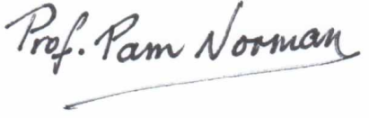 Prof. Pam Norman